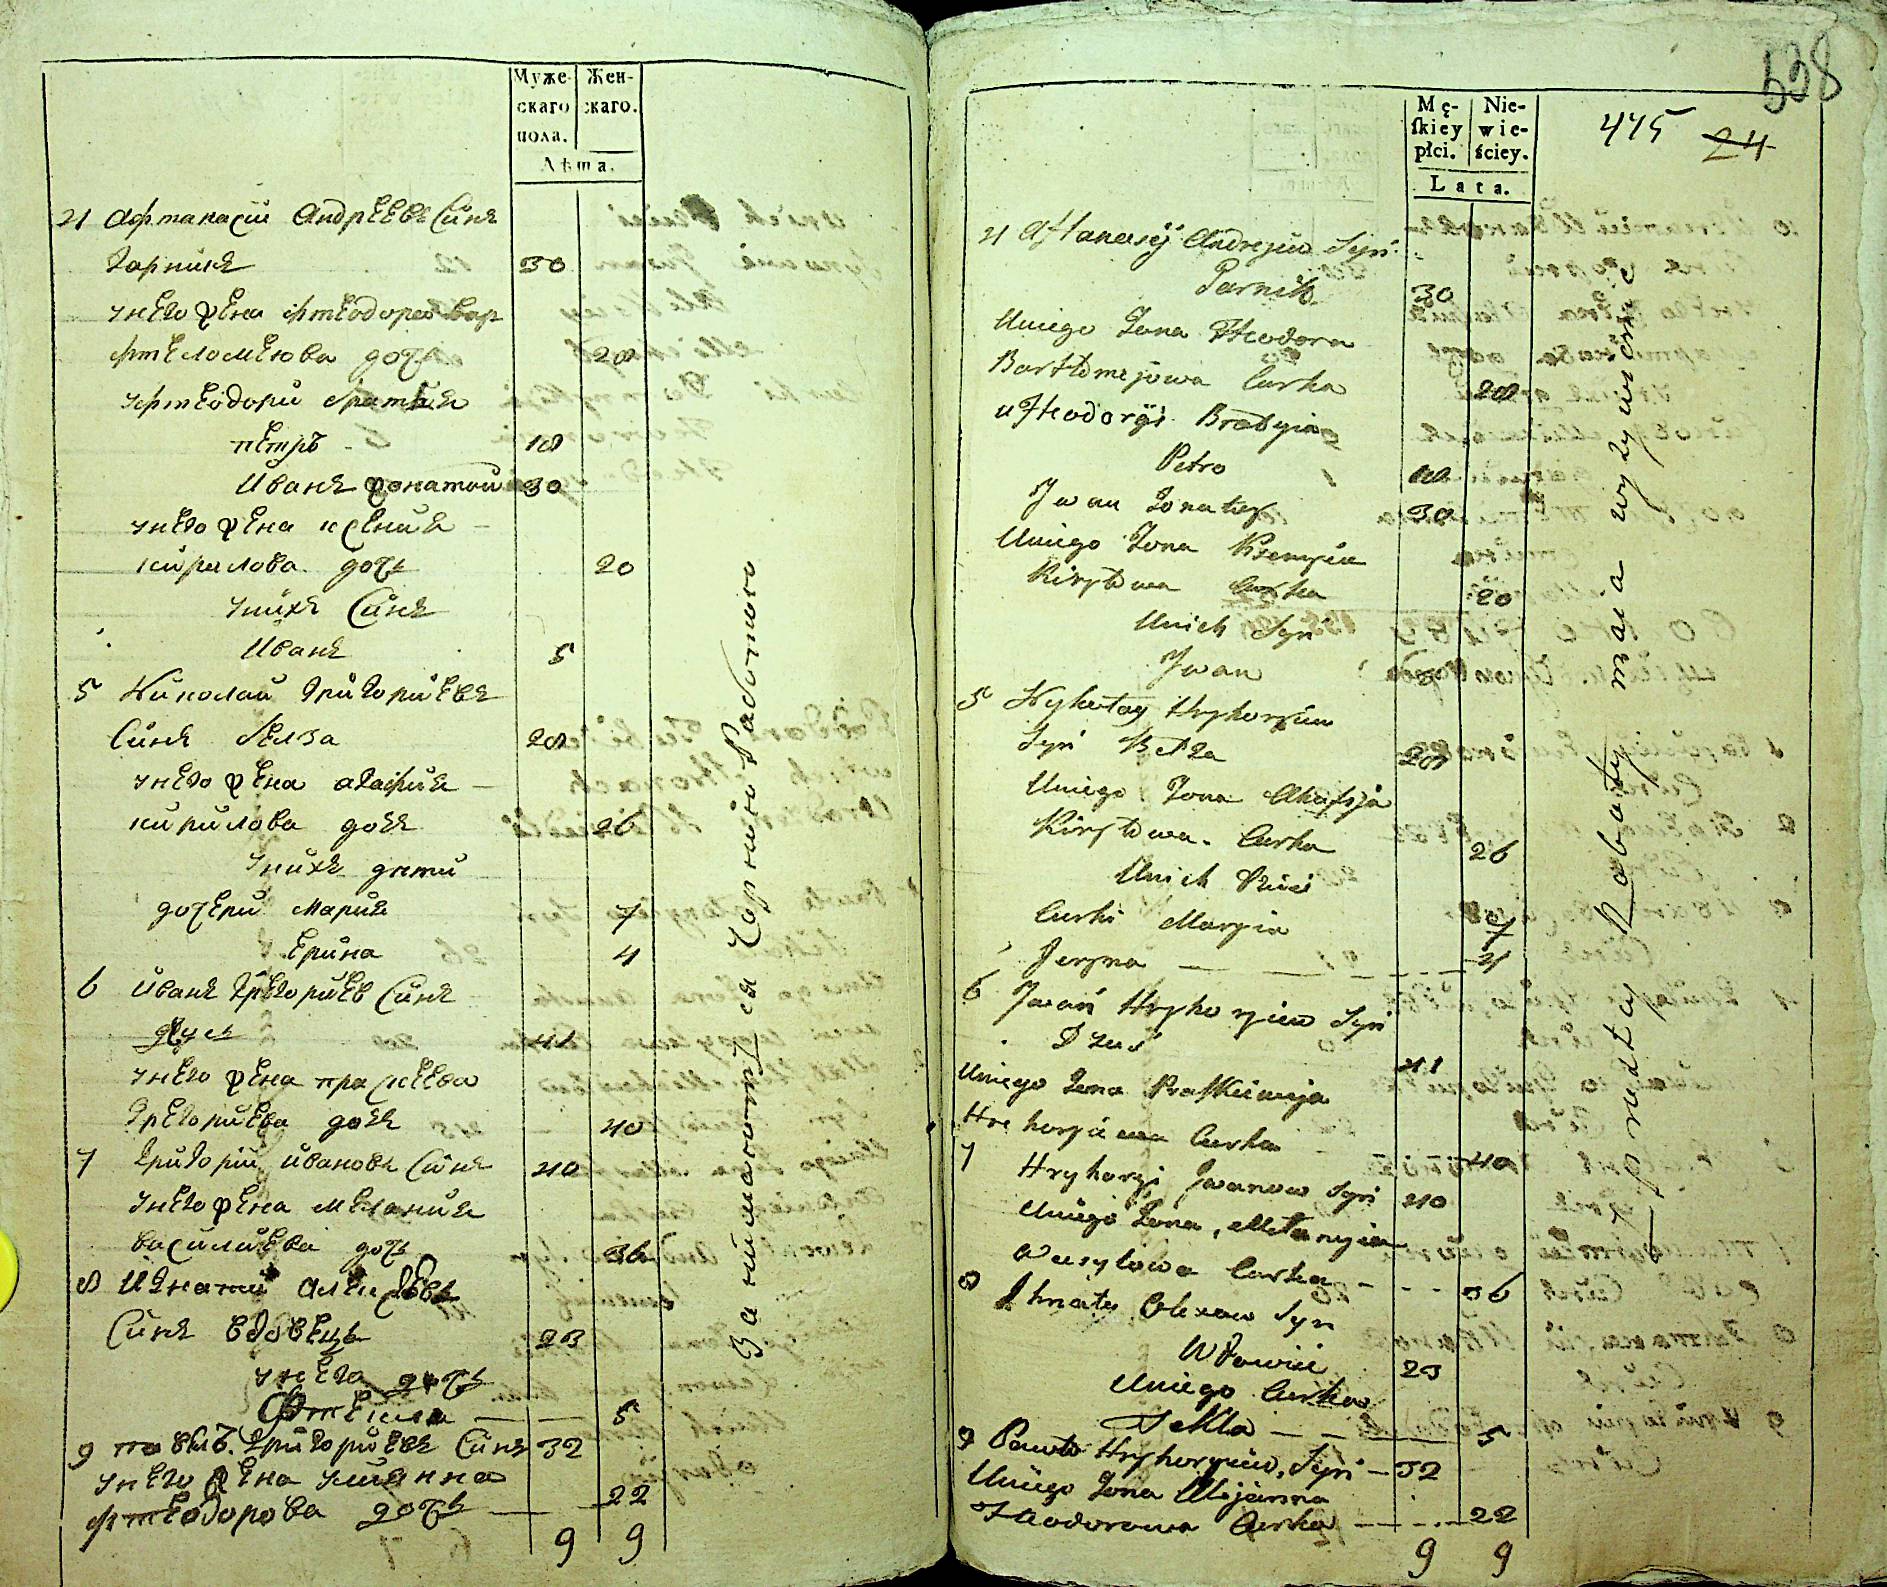 Муже- Жен-
скаго скаго.
пола.
Лѣта.
21 Афтанасій Андрѣевъ Синъ
Гарникъ 30
унего жена фтеодора Вар
фтеломеюва дочь 28
уфтеодори братъя
петръ - 18
Иванъ жонатой 30
унего жена ксения -
кирилова дочь 20
унихъ Синъ
Иванъ 5
5 Николай григориевъ
Синъ белза 28
унего жена агафия -
кирилова дочь 26
унихъ дети
дочери Мария 7
Ерина 4
6 Иванъ Грегориев Синъ
41
унего жена праскева
Грегориева дочь 40
7 григорий ивановъ Синъ 40
унего жена мелания
василиева дочь 36
8 Игнатий Алексѣевъ
Синъ вдовецъ 23
унего дочь
Фтекла — — 5
9 павелъ григориевъ Синъ 32
унего жена улианна
фтеодорова дочь — 22
9 9
Занимаютъся Чорнию Работою
538
Mę- Nie-
skiey wie-
płci. ściey.
Lata.
475 24
21 Aftanasÿ Andrejew Syn
Parnik 30
Uniego Żona Fteodora
Bartłomejowa Curka 28
u Fteodoryi Bratyia
Petro 18
Jwan Żonaty 30
Uniego Żona Ksenyia
Kiryłowa Curka 20
Unich Syn
Jwan 5
5 Nykołay Hryhoryiew
Syn Bełza 28
Uniego Żona Ahafija
Kiryłowa Curka 26
Unich Dzieci
Curki Maryia 7
Jeryna — — — 4
6 Jwan Hryhoryiew Syn
Dzuś 41
Uniego Żona Praskiewija
Hrehoryiewa Curka 40
7 Hryhoryi Jwanow Syn 40
Uniego Żona Mełanyia
Wasylowa Curka - - - 36
8 Ihnaty Olexow Syn
Wdowiec 23
Uniego Curka
Tekla — — — 5
9 Pawło Hryhoryiew Syn — 32
Uniego Żona Ulijanna
Fteodorowa Curka — — 22
9 9
z prostey Roboty maia wyżywienie